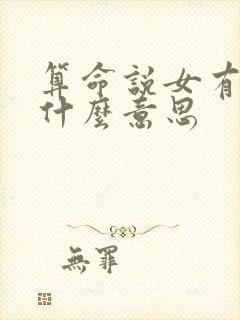 算命説女有
什麼意思
無罪